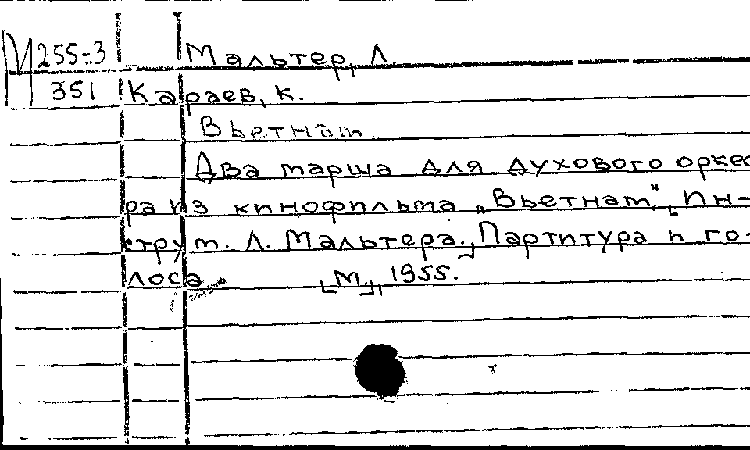 М 255-3 Мальтер, Л.
351 Караев, К.
Вьетнам.
Два марша для духового оркес
ра из кинофильма „Вьетнам". [Ин-
струм. Л. Мальтера.] Партитура и го-
лоса
[М.], 1955.